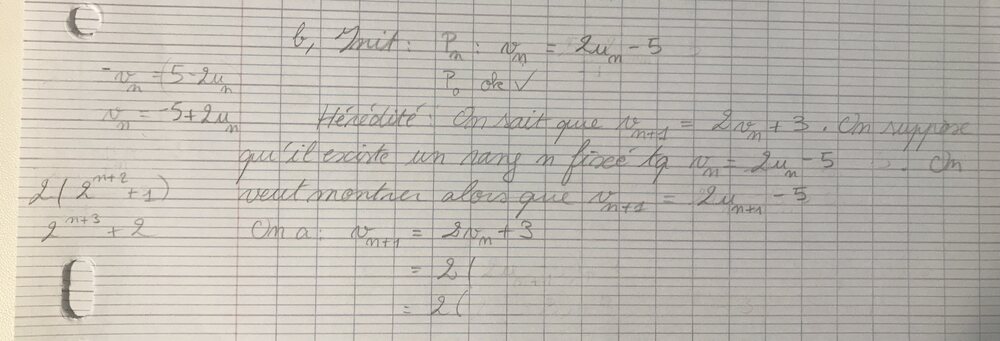 b, Init : P_n : v_n = 2u_n - 5
-v_n = (5 - 2u_n
P_0 ok ✓
v_n = -5 + 2u_n
Hérédité : On sait que v_{n+1} = 2v_n + 3. On suppose
qu'il existe un rang n fixé tq v_n = 2u_n - 5 On
2(2^{n+2} + 1)
veut montrer alors que v_{n+1} = 2u_{n+1} - 5
2^{n+3} + 2
On a : v_{n+1} = 2v_n + 3
= 2(2u_n
= 2(